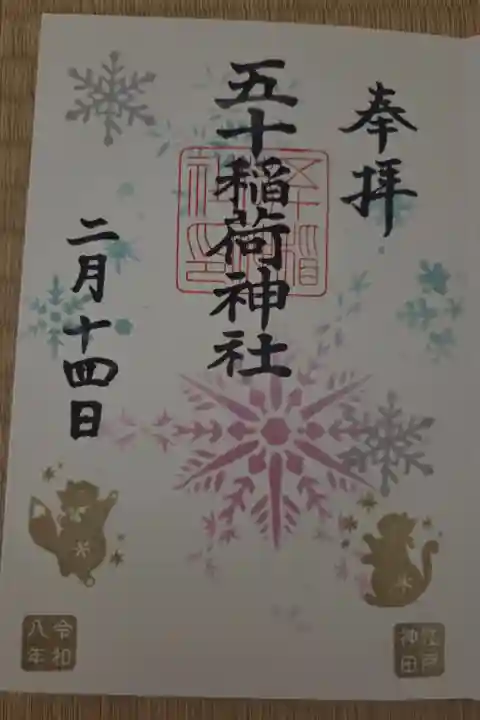 奉拝
五十稲荷神社
二月十四日
令和
八年
江戸
神田